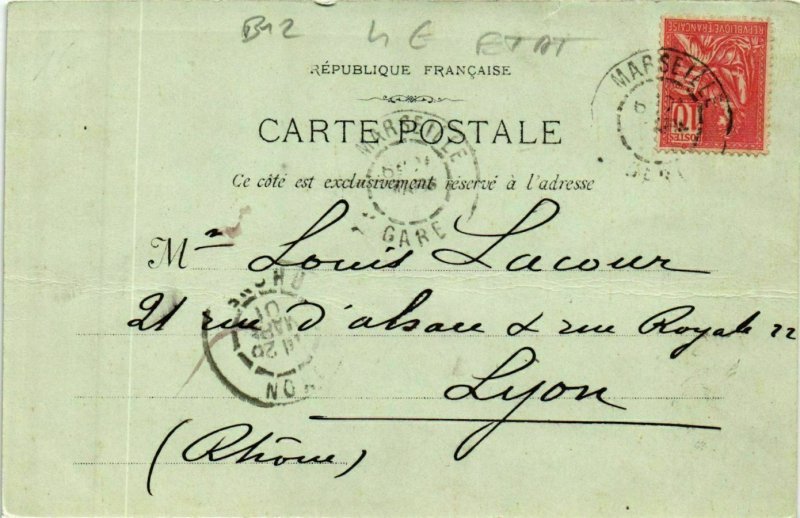 B12 4 E ETAT
RÉPUBLIQUE FRANÇAISE
CARTE POSTALE
Ce côté est exclusivement réservé à l'adresse
Mr Louis Lacour
21 rue d'alsace & rue Royale 22
Lyon
(Rhône)
REPUBLIQUE FRANÇAISE
10
POSTES
MARSEILLE
MARSEILLE
GARE
RHONE
20
MARS
01